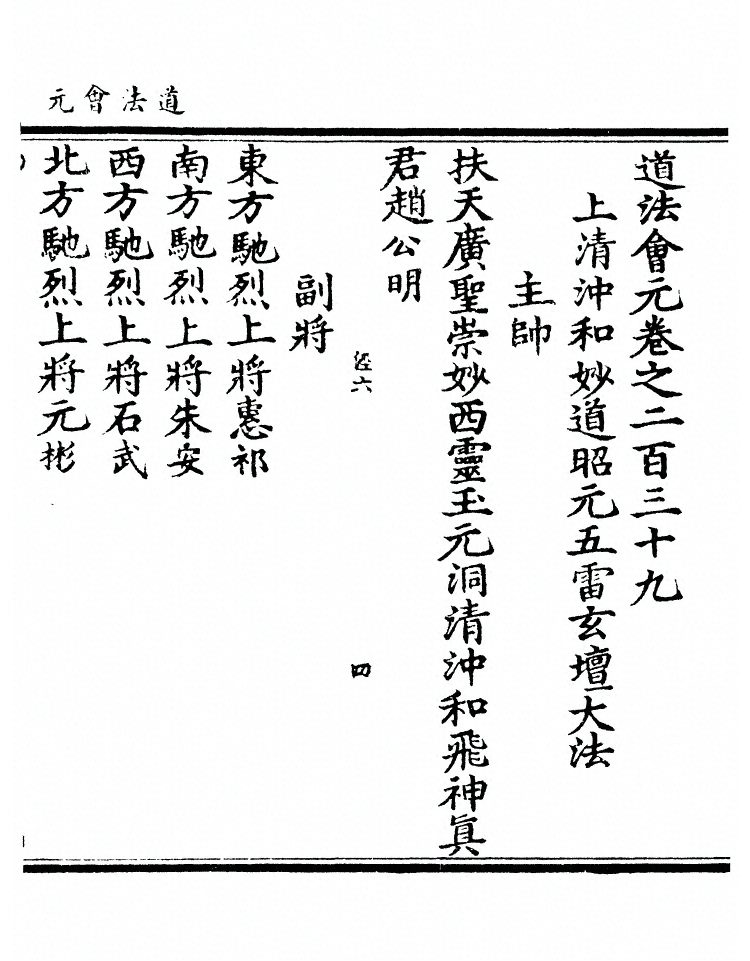 道法會元
道法會元卷之二百三十九
上清沖和妙道昭元五雷玄壇大法
主帥
扶天廣聖崇妙西靈玉元洞清沖和飛神眞
君趙公明
六
四
副將
東方馳烈上將惠祁
南方馳烈上將朱安
西方馳烈上將石武
北方馳烈上將元彬